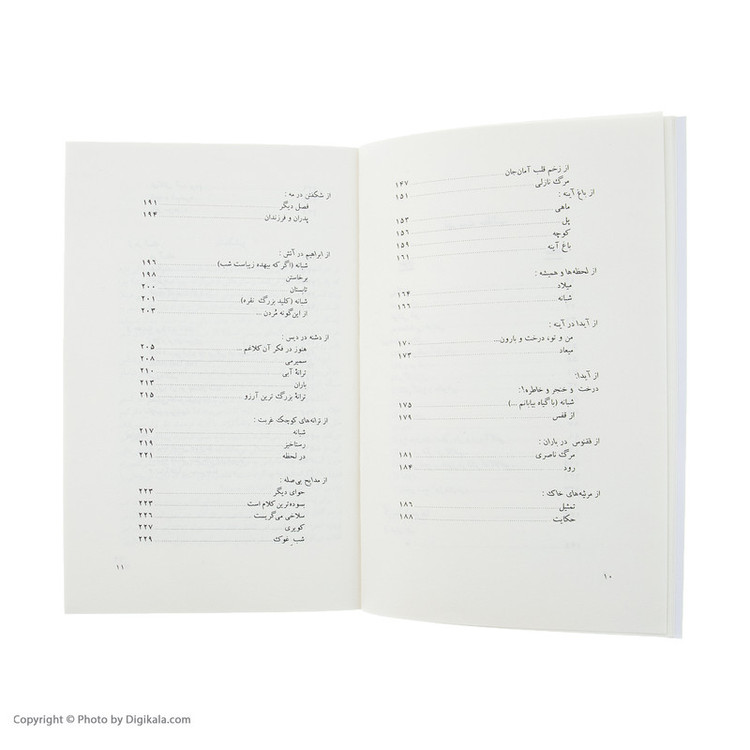 از زخم قلب آمان‌جان
مرگ نازلی ۱۴۷
از باغ آینه : ۱۵۱
ماهی
پل ۱۵۳
کوچه ۱۵۶
باغ آینه ۱۵۹
۱۶۱
از لحظه‌ها و همیشه :
میلاد ۱۶۴
شبانه ۱۶۶
از آیدا در آینه :
من و تو، درخت و بارون... ۱۷۰
میعاد ۱۷۳
از آیدا:
درخت و خنجر و خاطره!:
شبانه (با گیاه بیابانم ...) ۱۷۵
از قفس ۱۷۹
از ققنوس در باران :
مرگ ناصری ۱۸۱
رود ۱۸۴
از مرثیه‌های خاک :
تمثیل ۱۸۶
حکایت ۱۸۸
۱۰
از شکفتن در مه :
فصل دیگر ۱۹۱
پدران و فرزندان ۱۹۴
از ابراهیم در آتش :
شبانه (اگر که بیهده زیباست شب) ۱۹۶
برخاستن ۱۹۸
تابستان ۲۰۰
شبانه (کلید بزرگ نقره) ۲۰۱
از این‌گونه مُردن ... ۲۰۳
از دشنه در دیس :
هنوز در فکر آن کلاغم ... ۲۰۵
سمیرمی ۲۰۸
ترانهٔ آبی ۲۱۰
باران ۲۱۳
ترانهٔ بزرگ ترین آرزو ۲۱۵
از ترانه‌های کوچک غربت :
شبانه ۲۱۷
رستاخیز ۲۱۹
در لحظه ۲۲۱
از مدایح بی‌صله :
حوای دیگر ۲۲۳
بسوده‌ترین کلام است ۲۲۳
سلاخی می‌گریست ۲۲۶
کویری ۲۲۷
شب غوک ۲۲۹
۱۱
Copyright © Photo by Digikala.com